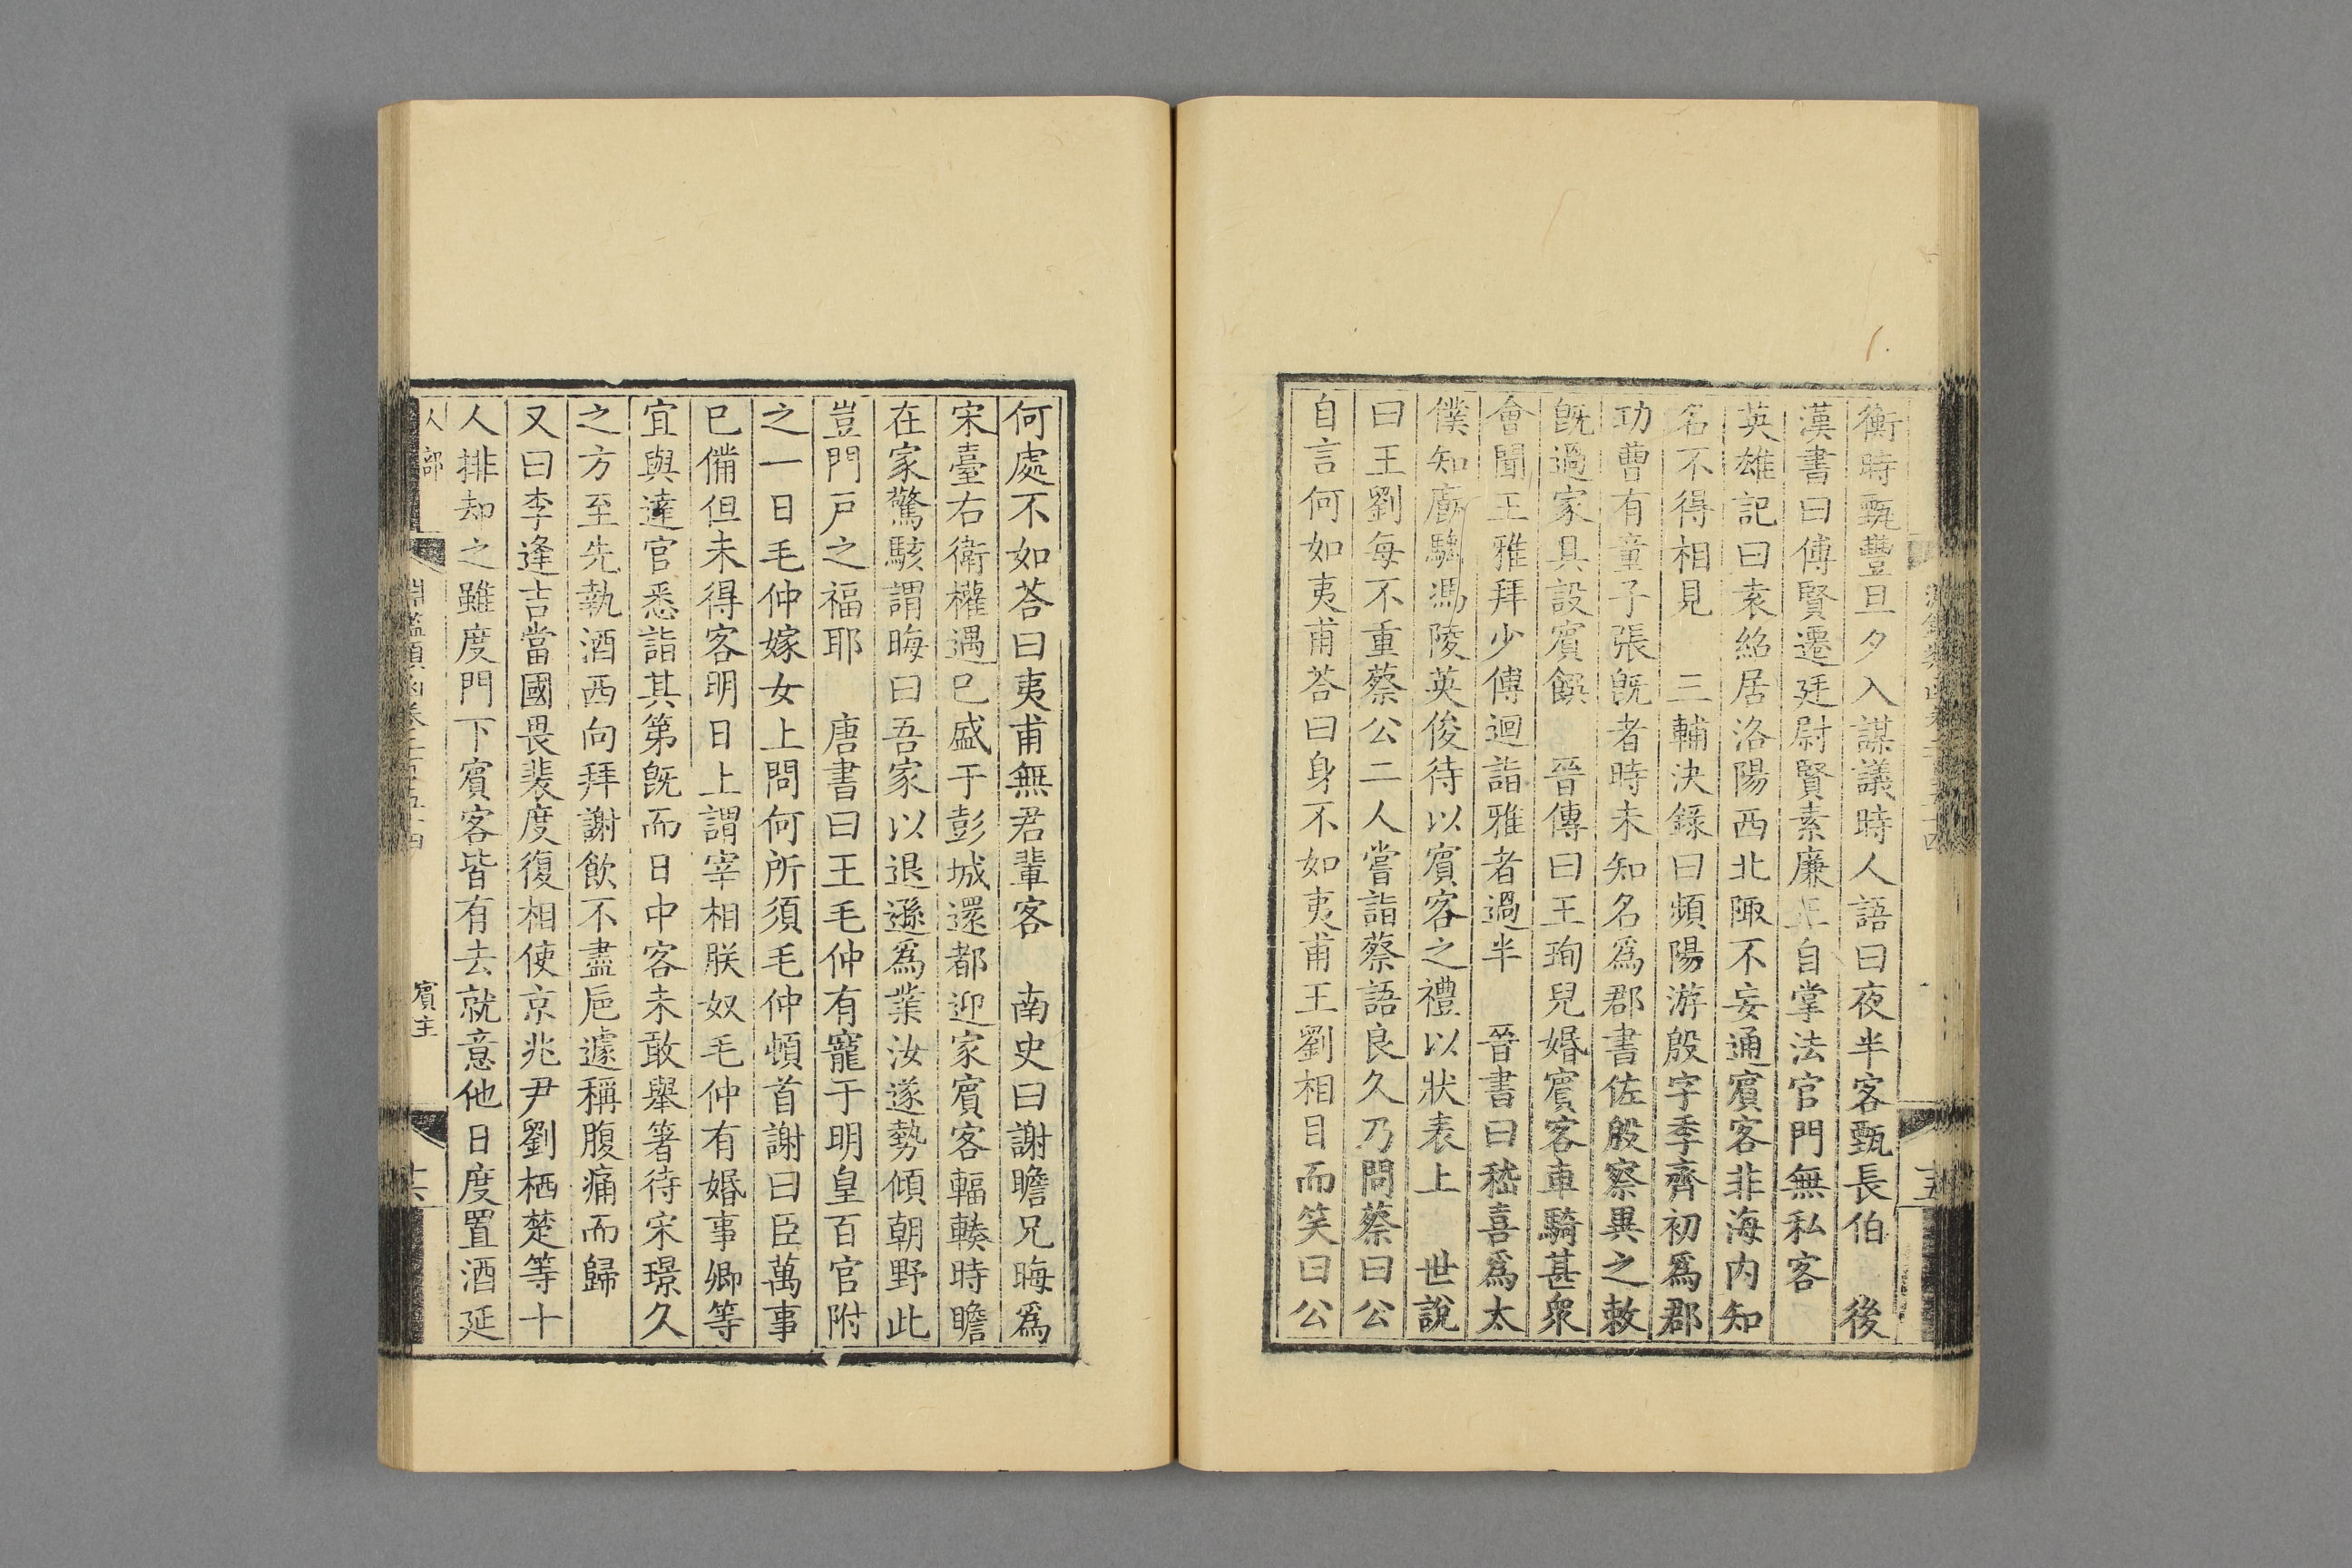 衡時甄豐旦夕入謀議時人語曰夜半客甄長伯　後
漢書曰傅賢遷廷尉賢素廉正自掌法官門無私客
英雄記曰袁紹居洛陽西北陬不妄通賓客非海內知
名不得相見　三輔決錄曰頻陽游殷字季齊初爲郡
功曹有童子張旣者時未知名爲郡書佐殷察異之敕
旣過家具設賓饌　晉傳曰王珣兒婚賓客車騎甚衆
會聞王雅拜少傅迴詣雅者過半　晉書曰嵇喜爲太
僕知廐騶馮陵英俊待以賓客之禮以狀表上　世說
曰王劉每不重蔡公二人嘗詣蔡語良久乃問蔡曰公
自言何如夷甫荅曰身不如夷甫王劉相目而笑曰公
何處不如荅曰夷甫無君輩客　南史曰謝瞻兄晦爲
宋臺右衛權遇已盛于彭城還都迎家賓客輻輳時瞻
在家驚駭謂晦曰吾家以退遜爲業汝遂勢傾朝野此
豈門戶之福耶　唐書曰王毛仲有寵于明皇百官附
之一日毛仲嫁女上問何所須毛仲頓首謝曰臣萬事
已備但未得客明日上謂宰相朕奴毛仲有婚事卿等
宜與達官悉詣其第旣而日中客未敢舉箸待宋璟久
之方至先執酒西向拜謝飲不盡巵遽稱腹痛而歸
又曰李逢吉當國畏裴度復相使京兆尹劉栖楚等十
人排却之雖度門下賓客皆有去就意他日度置酒延
人部
淵鑑類函卷三百五十四
賓主
十六